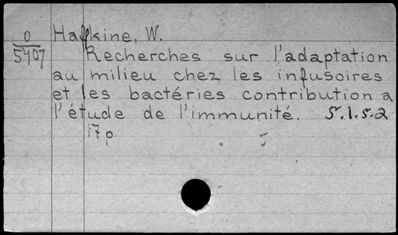 O Haffkine, W.
5407 Recherches sur l'adaptation
au milieu chez les infusoires
et les bactéries contribution a
l'étude de l'immunité. 5.1.5.2
17p